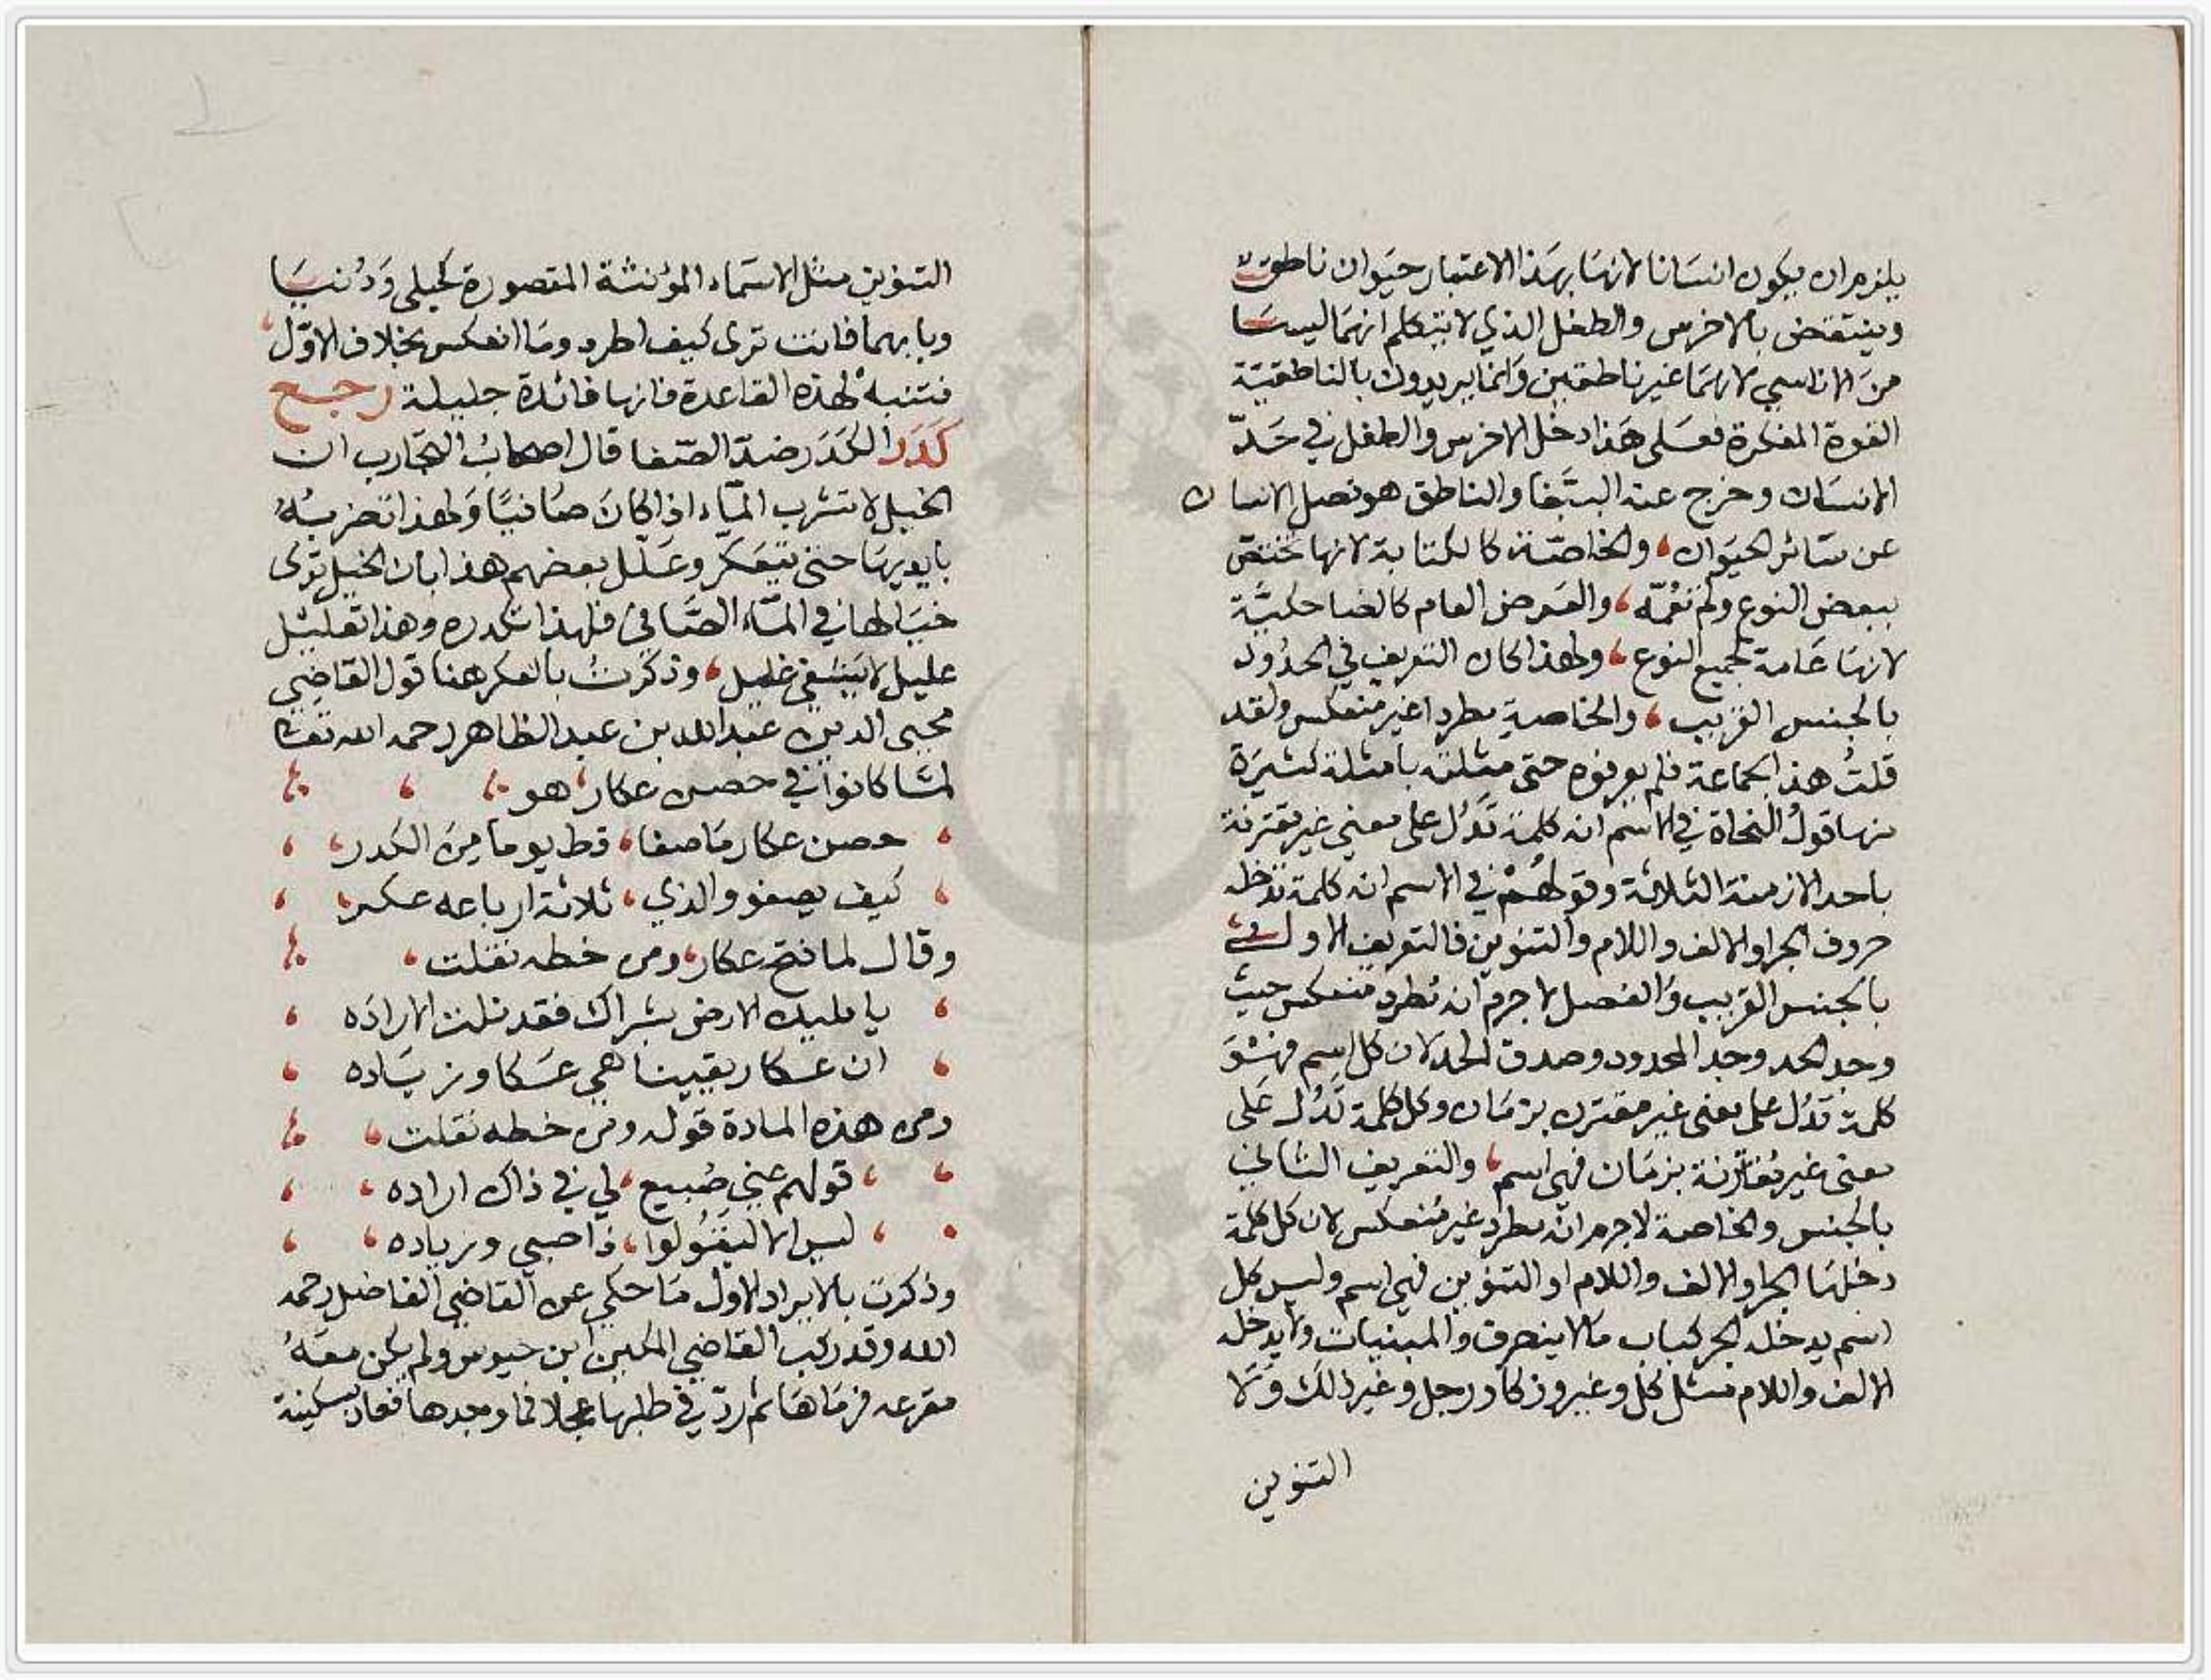 يلزم ان يكون انسانا لانها بهذا الاعتبار حيوان ناطق
وينتقض بالاخرس والطفل الذي لا يتكلم انهما ليسا
من الاناسي لانهما غير ناطقين وانما يريدون بالناطقية
القوة المفكرة فعلى هذا دخل الاخرس والطفل في حدّ
الانسان وخرج عنه الببغا والناطق هو فصل الانسان
عن سائر الحيوان، والخاصّة كالكتابة لانها تختص
ببعض النوع ولم تعمّه، والعرض العام كالضاحكية
لانها عامة لجميع النوع، ولهذا كان التعريف في الحدود
بالجنس القريب، والخاصية مطردا غير منعكس ولقد
قلتُ هذا لجماعة فلم يعرفوه حتى مثلته بامثلة كثيرة
منها قول النحاة في الاسم انه كلمة تدُل على معنى غير مقترنة
باحد الازمنة الثلاثة وقولهُمْ في الاسم انه كلمة تدخله
حروف الجر او الالف واللام والتنوين فالتعريف الاول
بالجنس القريب والفصل لا جرم انه مطرد منعكس حيث
وجد الحد وجد المحدود وصدق الحد لان كل اسم فهو
كلمة تدُل على معنى غير مقترن بزمان وكل كلمة تدُل على
معنى غير مقترنة بزمان فهي اسم، والتعريف الثاني
بالجنس والخاصة لا جرم انه مطرد غير منعكس لان كل كلمة
دخلها الجر او الالف واللام او التنوين فهي اسم وليس كل
اسم يدخله الجر كباب ما لا ينصرف والمبنيات ولا يدخله
الالف واللام مثل كل وغير وزكا ورجل وغير ذلك ولا
التنوين
التنوين مثل الاسماء المؤنثة المقصورة كحبلى ودُنيا
وبابهما فانت ترى كيف اطرد وما انعكس بخلاف الاوّل
فتنبهْ لهذه القاعدة فانها فائدة جليلة رجع
كَدَر الكدَر ضدّ الصّفا قال اصحابُ التجارب ان
الخيل لا تشرب الماء اذا كانَ صافيًا ولهذا تضربهُ
بايديها حتى يتعكر وعلل بعضهم هذا بان الخيل ترى
خيالها في الماء الصّافي فلهذا تكدره وهذا تعليل
عليل لا يشفي غليل، وذكرتُ بالعكر هنا قول القاضي
محيى الدين عبد الله بن عبد الظاهر رحمه الله تعالى
لمّا كانوا في حصن عكار، هو
حصن عكار ما صفا، قط يوما من الكدر
كيف يصفو والذي، ثلاثة ارباعه عكر
وقال لما فتح عكار، ومن خطه نقلت
يا مليك الارض بشراك فقد نلت الاراده
ان عكار يقينا هي عكا وزياده
ومن هذه المادة قوله ومن خطه نقلت
قولهم عني صُبيع، لي في ذاك اراده
ليس الا ليقولوا، ذا صبي وزياده
وذكرت بالايراد الاول ما حكي عن القاضي الفاضل رحمه
الله وقد ركب القاضي المكين ابن حيوس ولم يكن معهُ
مقرعه فرماها ثم ردّ في طلبها عجلا فما وجدها فعاد بسكينة